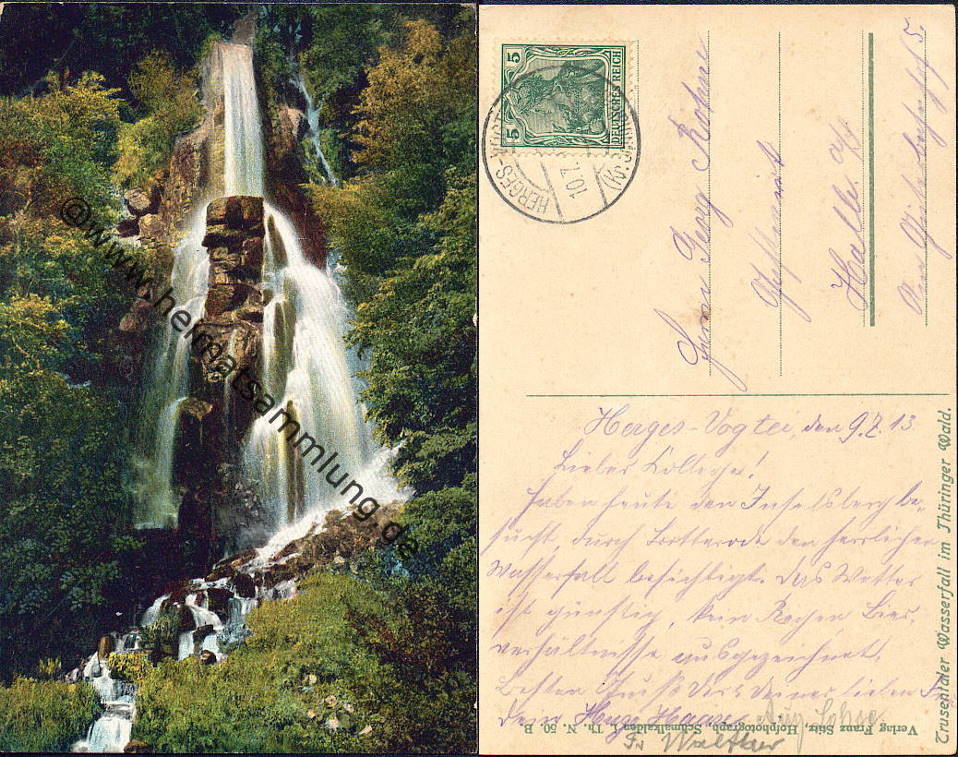 © www.heimatsammlung.de
5
5
DEUTSCHES REICH
HERGES-VOGTEI
10.7.
Herrn Georg Rohne
Halle a/S
Herges-Vogtei, den 9.7.13.
Lieber College!
Haben heute den Inselsberg be-
sucht, durch Brotterode den herrlichen
Wasserfall besichtigt. Das Wetter
ist günstig, kein Regen Bier
verhältnisse ausgezeichnet.
Besten Gruß
Hugo Haase
Fr Walther
Trusentaler Wasserfall im Thüringer Wald.
Verlag Franz Stitz, Hofphotograph, Schmalkalden i. Th. N. 50. B